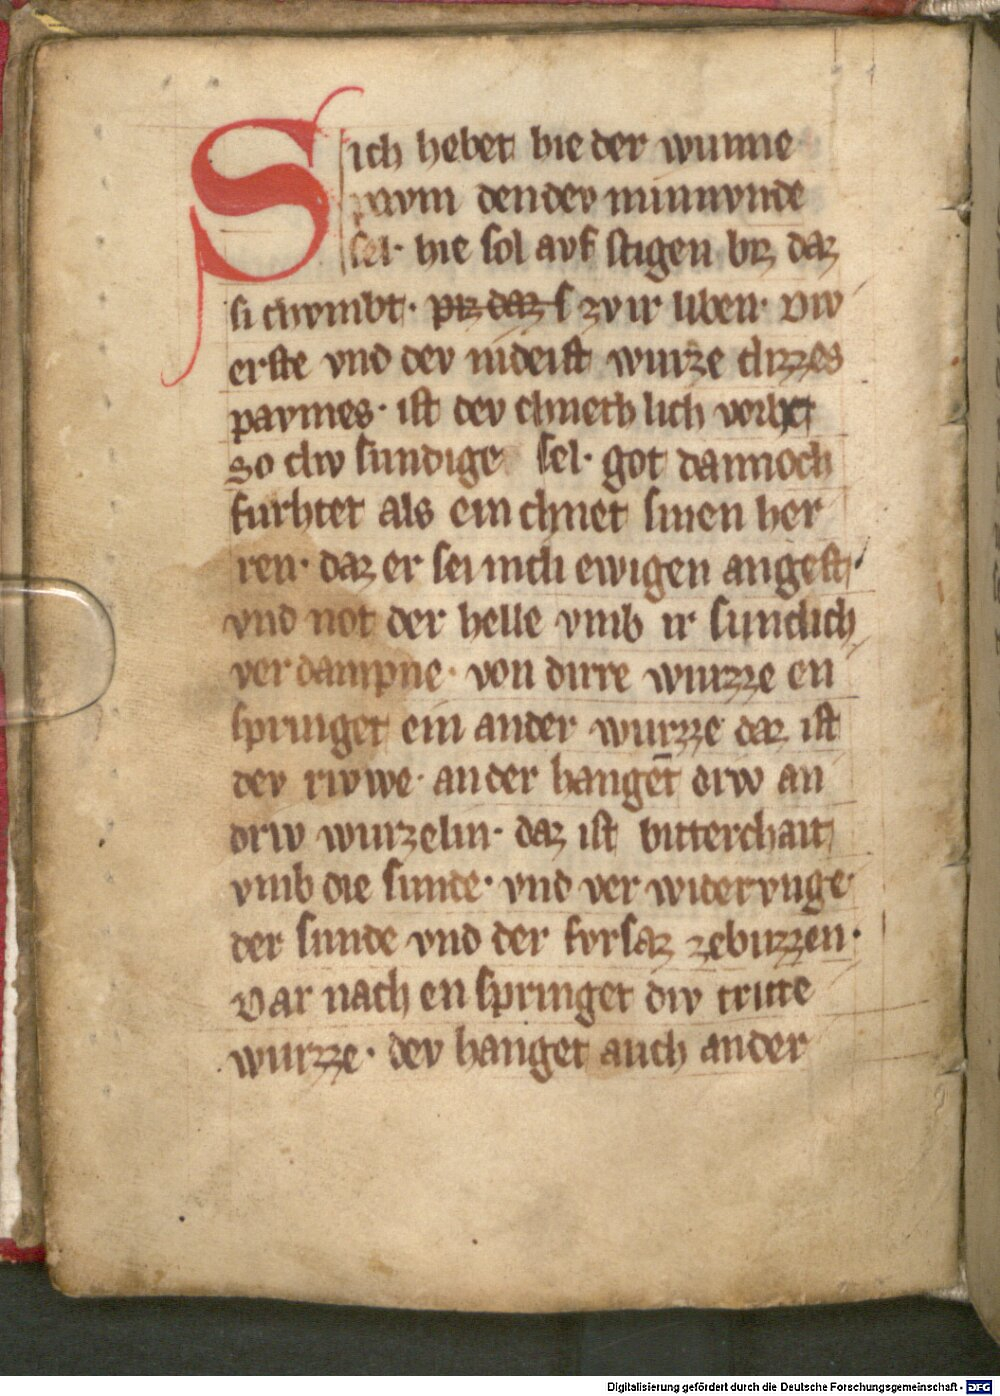 Sich hebet hie der wunne
pavm den dev minnvnde
sel· hie sol avf stigen biz daz
si chvmbt· piz daz s zv ir liben· Div
erste vnd dev niderist wurze dizzes
pavmes· ist dev chnethlich vorht
so div sundige sel· got dannoch
furhtet als ein chnet sinen her
ren· daz er sei in di ewigen angest
vnd not der helle vmb ir suntlich
verdampne· von dirre wurzze en
springet ein ander wurzze daz ist
dev riwwe· an der hangēt driv an
driv wurzelin· daz ist bitterchait
vmb die sunde· vnd ver widervnge·
der sunde vnd der fvrsaz zebuzzen·
Dar nach en springet div tritte
wurzze· dev hanget auch an der
Digitalisierung gefördert durch die Deutsche Forschungsgemeinschaft - DFG